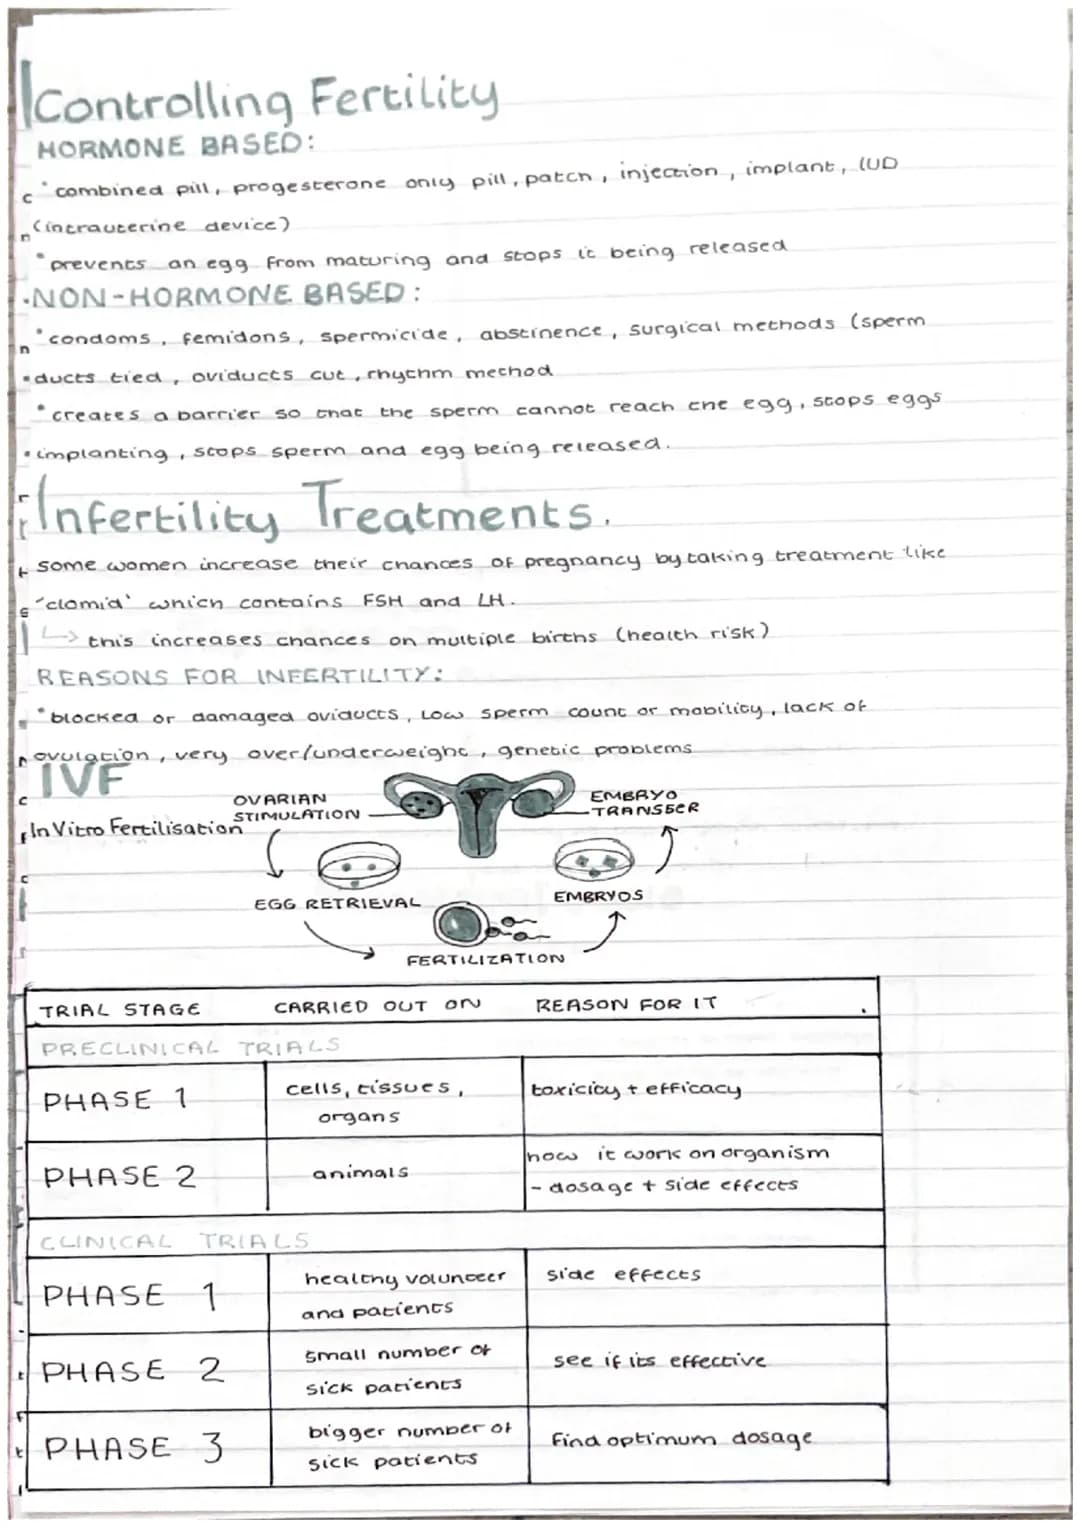 Controlling Fertility
HORMONE BASED:
• combined pill, progesterone only pill, patch, injection, implant, IUD
(intrauterine device)
• prevents an egg from maturing and stops it being released
NON-HORMONE BASED:
• condoms, femidons, spermicide, abstinence, surgical methods (sperm
ducts tied, oviducts cut, rhythm method
• creates a barrier so that the sperm cannot reach the egg, stops eggs
implanting, stops sperm and egg being released.
Infertility Treatments.
some women increase their chances of pregnancy by taking treatment like
'clomid' which contains FSH and LH.
↳ this increases chances on multiple births (health risk)
REASONS FOR INFERTILITY:
• blocked or damaged oviducts, low sperm count or mobility, lack of
ovulation, very over/underweight, genetic problems
IVF
In Vitro Fertilisation
OVARIAN
STIMULATION
EMBRYO
TRANSFER
EGG RETRIEVAL
EMBRYOS
FERTILIZATION
TRIAL STAGE CARRIED OUT ON REASON FOR IT
PRECLINICAL TRIALS
PHASE 1 cells, tissues, toxicity + efficacy
organs
PHASE 2 animals how it work on organism
- dosage + side effects
CLINICAL TRIALS
PHASE 1 healthy volunteer side effects
and patients
PHASE 2 small number of see if its effective
sick patients
PHASE 3 bigger number of find optimum dosage
sick patients